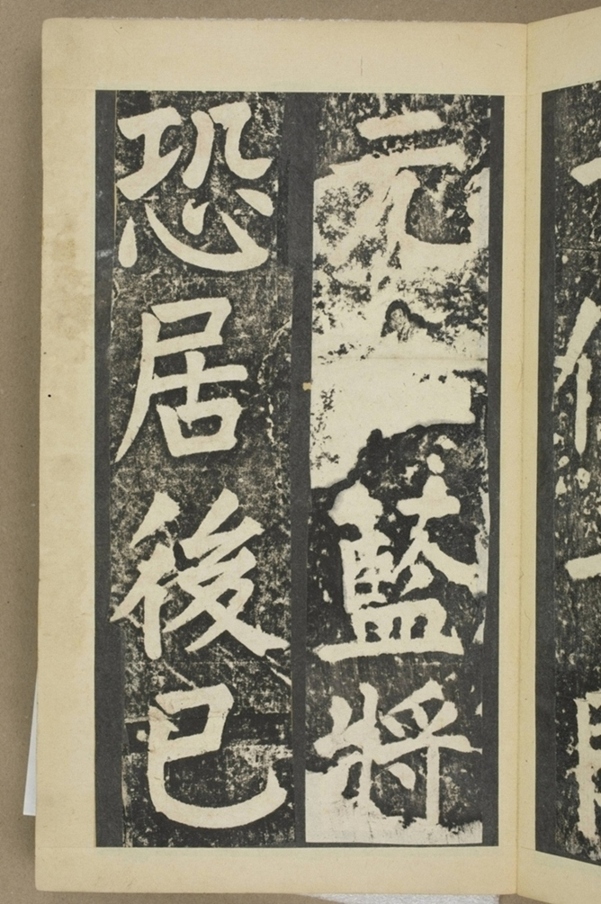 元藍將
恐居後已